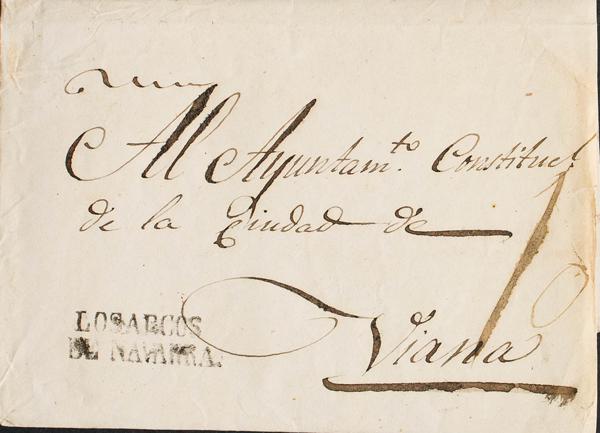 Al Ayuntam.to Constitucl
de la Ciudad de
Viana
LOS ARCOS
DE NAVARRA.